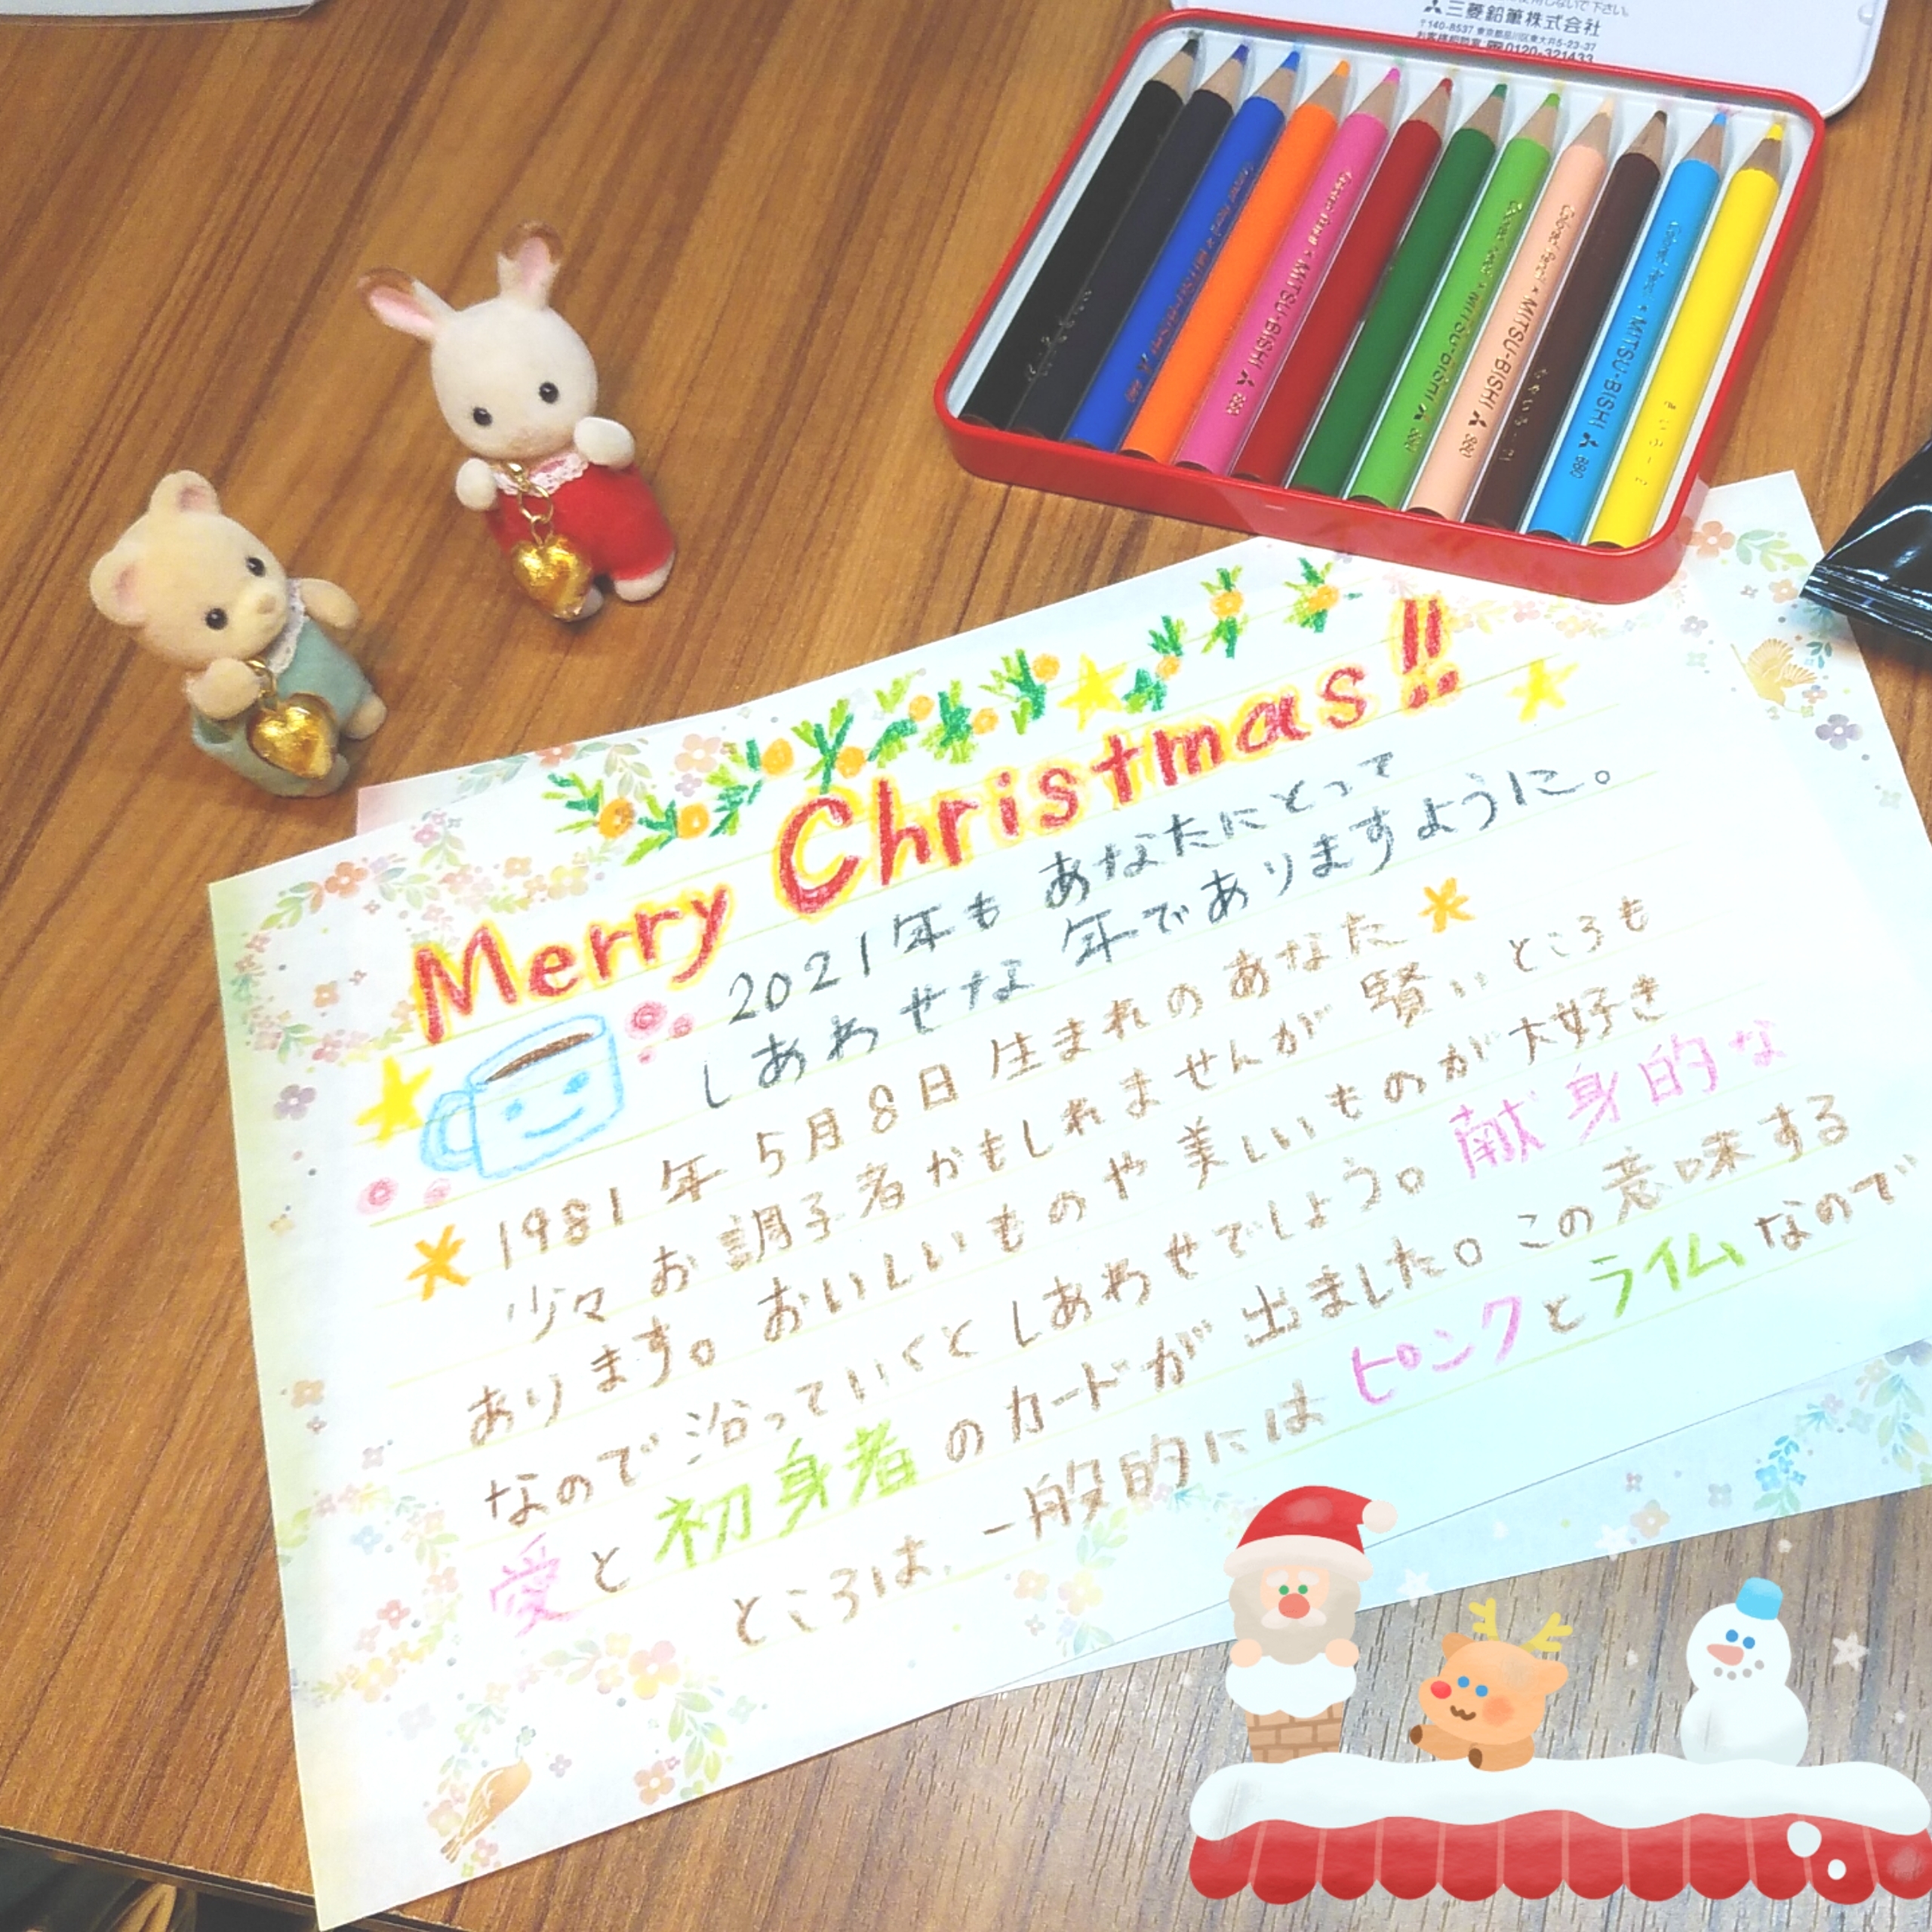 三菱鉛筆株式会社
〒140-8537 東京都品川区東大井5-23-37
0120-321433
MITSU-BISHI 880
MITSU-BISHI 880
MITSU-BISHI 880
Merry Christmas!!
2021年も あなたにとって
しあわせな 年でありますように。
1981年5月8日 生まれの あなた
少々 お調子者かもしれませんが 賢いところも
あります。おいしいものや 美しいものが大好き
なので 沿っていくと しあわせでしょう。献身的な
愛と 初身者 のカードが 出ました。この意味する
ところは、一般的には ピンクと ライム なので